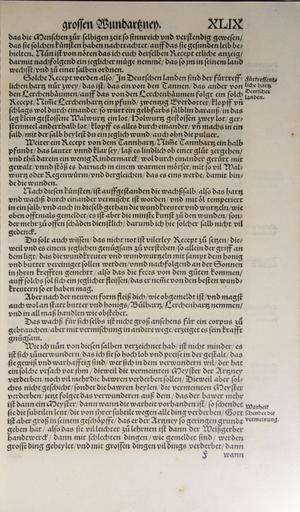 grossen Wundartzney. XLIX
das die Menschen zur selbigen zeit so sinnreich und verstendig gewesen/
das sie solchen künsten haben nachtrachtet/ auff das sie gesunden leib be-
hielten. Nun ist von nöten das ich euch derselben Recept etliche anzeig/
darmit nachfolgend ein jeglicher müge nemmen/ das so jm in seinem land
wechßt/ und zu einer salben ordnen.
Solche Recept werden also/ In Deutschen landen sind der fürtreff-
lichen hartz nur zwey/ das ist/ das ein von den Tannen/ das ander von
den Lerchenbäumen/ auff das von den Lerchenbäumen folgt ein solch
Recept. Nimm Lerchenhartz ein pfund/
schlags wol durch einander/ so wirt ein gelbfarbe sälblin daraus/ in das
leg klein gestossene Walwurtz ein lot/ Holwurtz gestossen zwey lot/ ger-
stenmeel anderthalb lot/ Klopff es alles durch einander/ un machs in ein
salb/ mit der salb heylest du ein yeglich wund/ auch ohn die puluer.
Weiter ein Recept von dem Tannhartz. Nimm Tannhartz ein halb
pfundt/ das lauter unnd klar sey/ laß es lindlich ob einer glůt zergehen/
und thů darein ein wenig Rindermarck/ wol durch einander gerürt mit
gewalt/ und stoß es darnach in einem warmen mörser/ mit so vil Wal-
wurtz oder Regenwürm/ und dergleichen/ das es eins werde/ damit bin-
de die wunden.
Nach disen künsten/ ist auffgestanden die wachßsalb/ also das hartz
und wachß durch einander vermischt ist worden/ und mit öl temperiert
in ein salb/ und auch in dieselb gethan die wundkreuter und wurtzlen/ wie
oben offtmals gemeldet/ es ist aber die minste kunst zu den wunden/ son-
der mehr zu offen schäden dienstlich/ darumb ich hie solcher salb nicht vil
gedenck.
Du solt auch wissen/ das nicht not ist vilerley Recept zu setzen/ die-
weil uns es einem jeglichen gnügsam zu verstehen ist/ so allein der griff an
den ligt/ das die wundkreuter und wundwurtzeln mit sampt dem honig
und butter vereiniget sollen werden/ und nachfolgend an der Sonnen
in jhren krefften genehrt/ also das die feces von dem güten kommen/
auff solchs sol sich ein jeglicher fleissen/ das er nemme von den besten wundt-
kreutern so er haben mag.
Aber nach der neuwen form fleiß dich/ wie ob gemeldet ist/ und magst
auch wol an statt butter und honigs/ Bülhartz/ Lerchenhartz nemmen/
und in all maß handlen wie obstehet.
Das wachß für sich selbs ist nicht groß ansehens für ein corpus zu
gebrauchen/ aber mit vermischung in andere wege/ erzeiget es sein krafft
gnügsam.
Wie ich nun von disen salben verzeichnet hab/ ist nicht minder/ es
ist sich zuuerwundern/ das ich sie so hoch lob und preiß in der gestalt/ das
sie gewiß und warhafftig sind/ wer sich dem verwundern will/ der hat
ein solche ursach vor jhm/ dieweil die vermeinten Meyster der Artzney
verderben/ noch vil mehr die bawren verderben sollen/ Dieweil aber sol-
ches nicht geschicht/ sonder die bawren heylen/ die vermeinten Meyster
verderben/ jetzt folget das verwunderen auß dem/ das der bawer mehr
ist dann ein Meyster/ dann wann die warheit vorhanden ist/ so schendet
sie die subtilen leut/ die von jhrer subteile wegen alle ding verderben/ Gott
ist aber groß in seinem geschöpffe/ das er der Artzney so geringen grundt
geben hat/ also das sie vil leichter zu lehrnen ist dann der Weißgerber
handtwerck/ dann mit schlechten dingen/ wie gemeldet sind/ werden
grosse ding geheylet/ und mit grossen dingen vil dings verderbet/ dann
f wann
Fürtreffents
liche hartz
Deutscher
landen.
Warheit
schendet die
vermeinung.